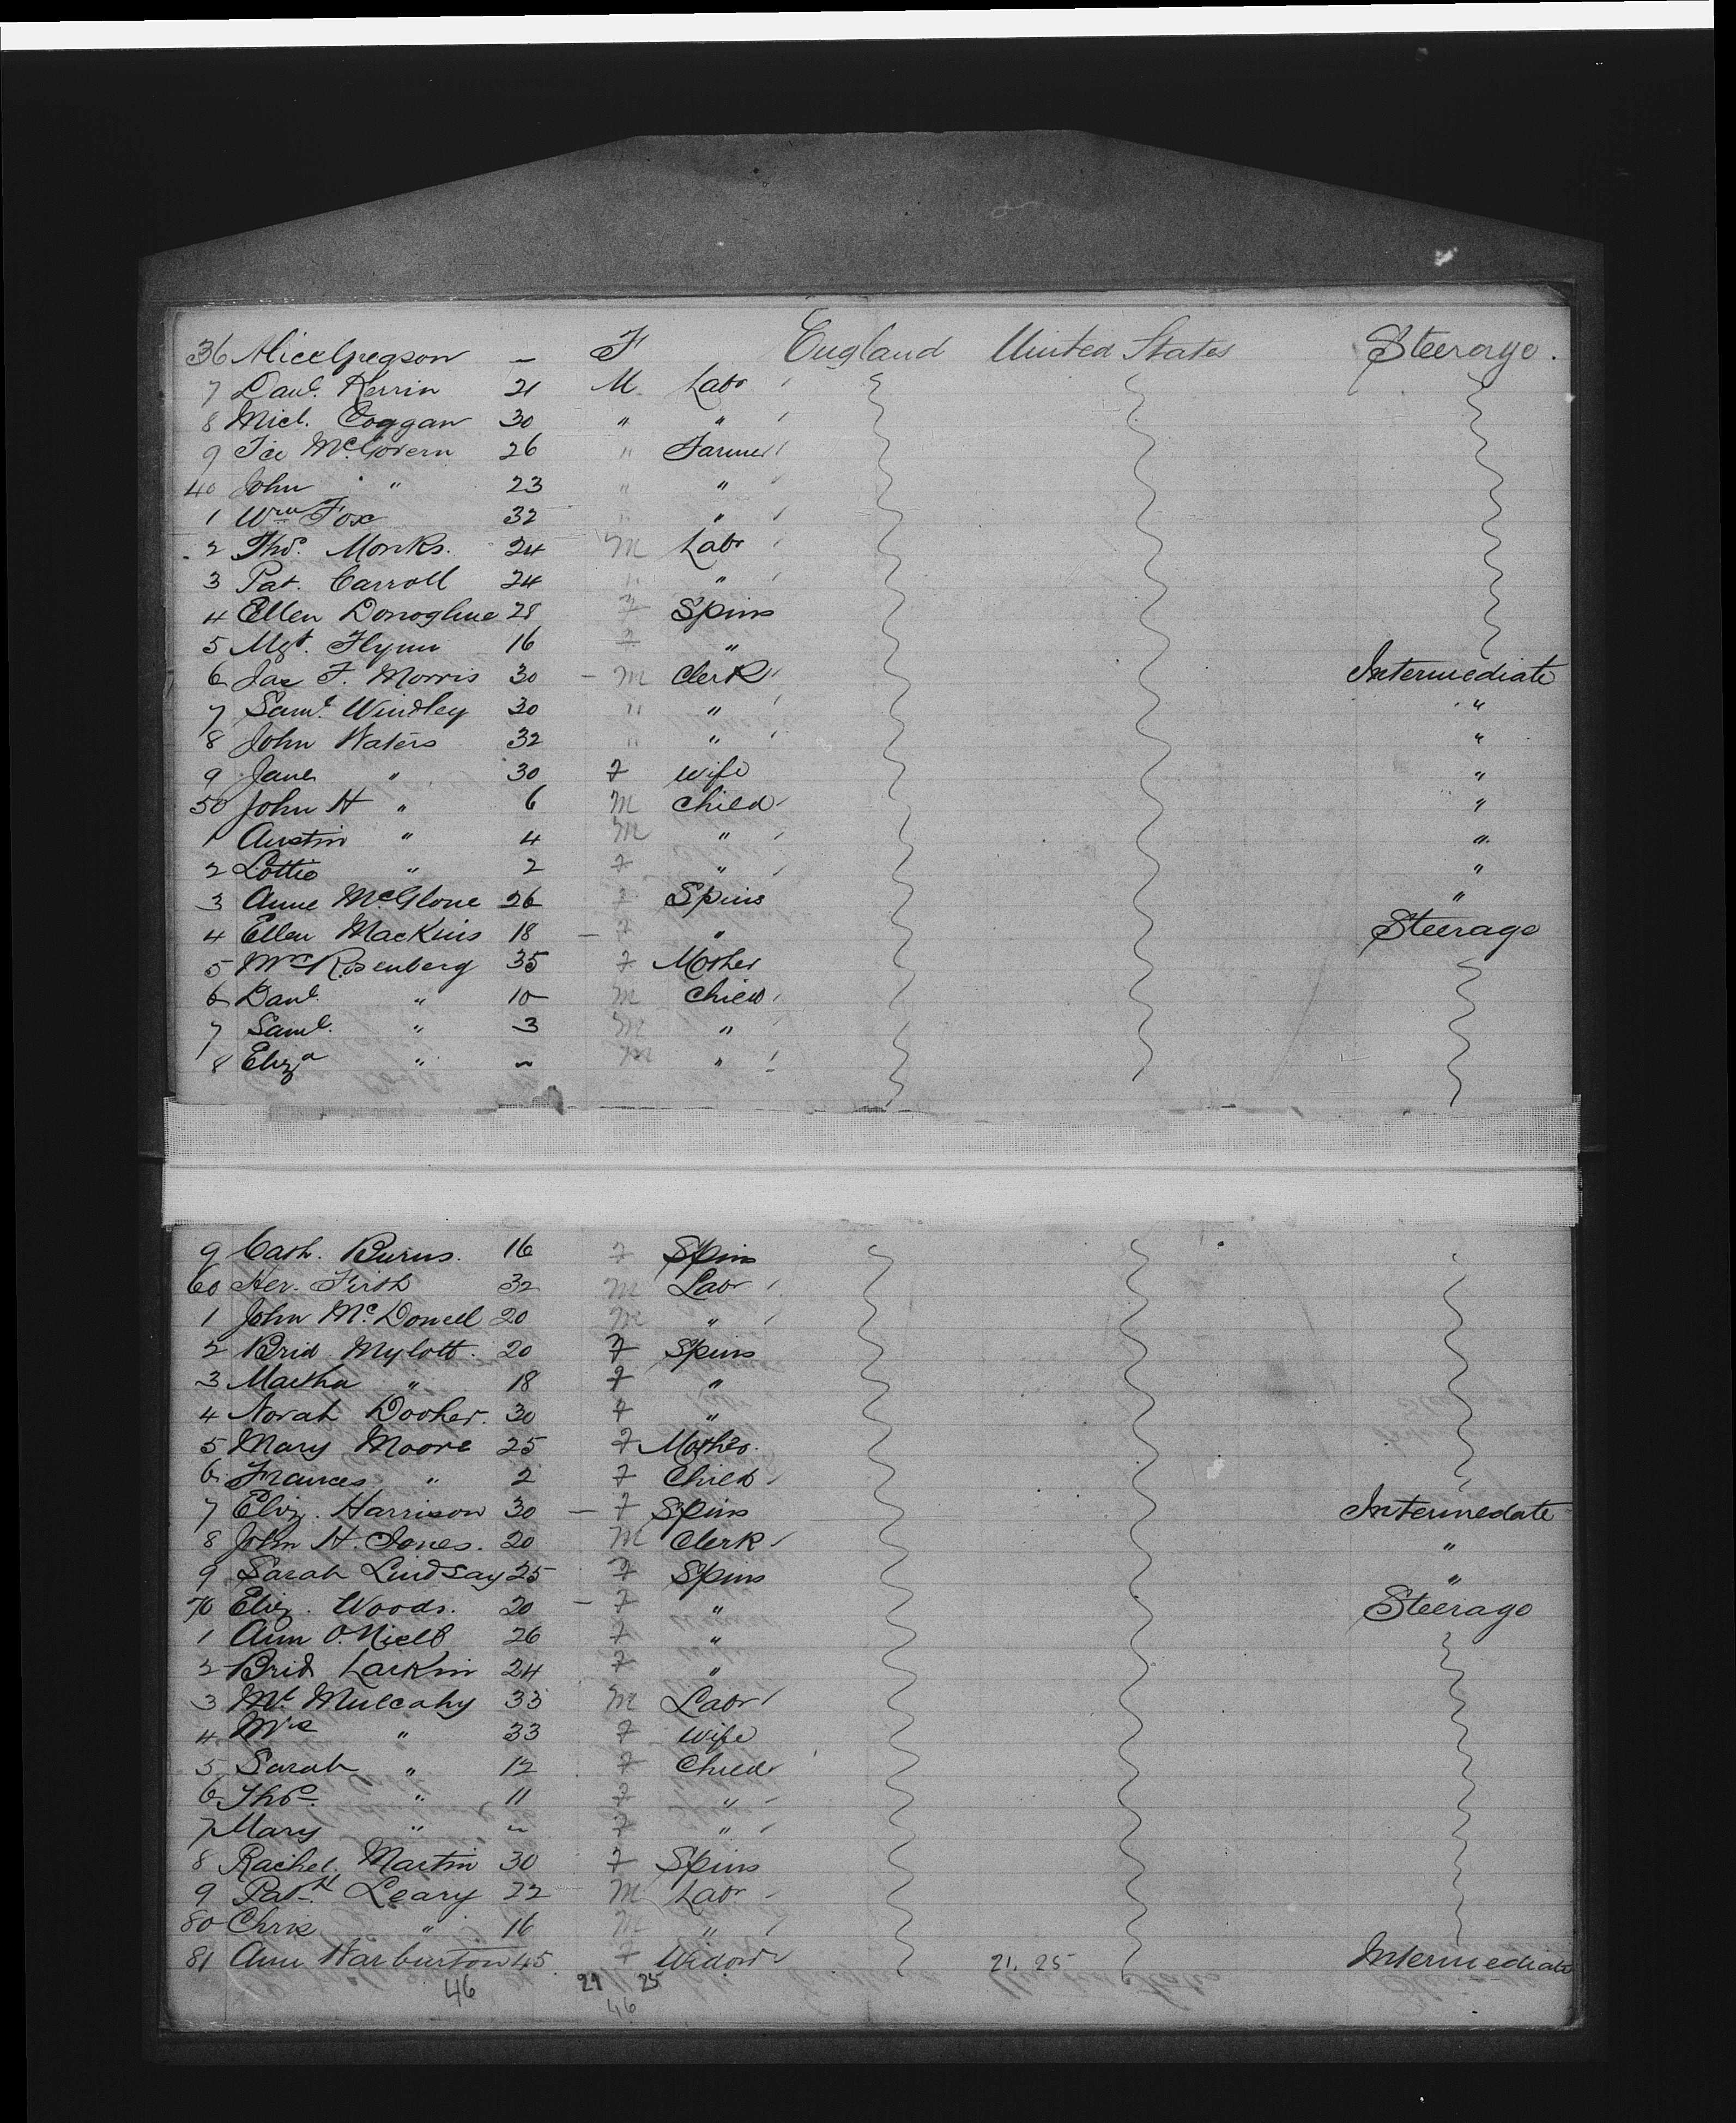 36 Alice Gregson — F England United States Steerage.
7 Danl. Kerrin 21 M Labr
8 Micl. Coggan 30 " "
9 McGovern 26 " Farmer
40 John " 23 " "
1 Wm Fox 32 " "
2 Thos. Monks. 24 M Labr
3 Pat. Carroll 24 " "
4 Ellen Donoghue 28 F Spins
5 Mgt. Flynn 16 F "
6 Jas F. Morris 30 — M Clerk Intermediate
7 Saml. Windley 30 " " "
8 John Waters 32 " " "
9 Jane " 30 F Wife "
50 John H " 6 M Child "
1 Austin " 4 M " "
2 Lottie " 2 F " "
3 Anne McGlone 26 F Spins "
4 Ellen Mackins 18 — F " Steerage
5 Rosenberg 35 F Mother
6 Danl. " 10 M Child
7 Saml. " 3 M "
8 Eliza " ~ M "
9 Cath. Burns. 16 F Spins
60 Firth 32 M Labr
1 John McDonell 20 M "
2 Brid Mylott. 20 F Spins
3 Martha " 18 F "
4 Norah Dooher. 30 F "
5 Mary Moore 25 F Mother
6 Frances " 2 F Child
7 Eliz. Harrison 30 — F Spins Intermedate
8 John H. Jones. 20 M Clerk "
9 Sarah Lindsay 25 F Spins "
70 Eliz. Woods. 20 — F " Steerage
1 Ann O.Niell 26 F "
2 Brid Larkin 24 F "
3 Mt. Mulcahy 33 M Labr
4 Mrs " 33 F Wife
5 Sarah " 12 F Child
6 Thos. " 11 F "
7 Mary " ~ F "
8 Rachel. Martin 30 F Spins
9 Leary 22 M Labr
80 Chris " 16 M "
81 Ann Warburton 45 F Widow 21. 25 Intermediate
46 21 25
46